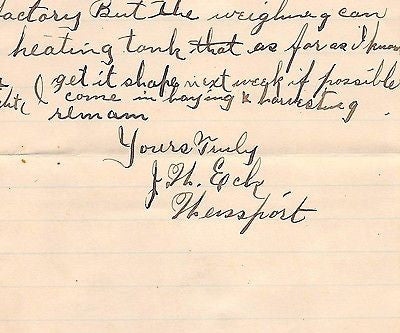 factory But the weighing can
heating tank that as far as I know
get it shape next week if possible
I come in haying & harvesting
remain
Yours Truly
J. H. Eck
Weissport